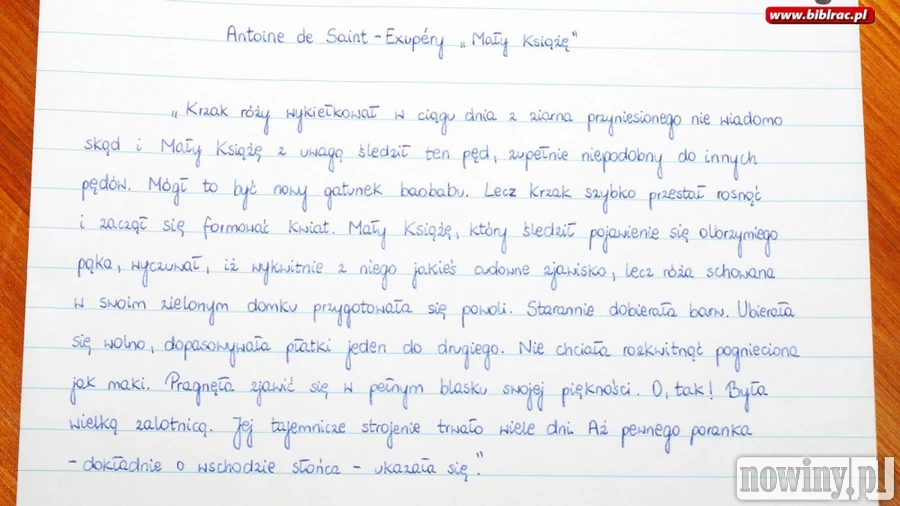 www.biblrac.pl
Antoine de Saint-Exupéry „Mały Książę"
„Krzak róży wykiełkował w ciągu dnia z ziarna przyniesionego nie wiadomo
skąd i Mały Książę z uwagą śledził ten pęd, zupełnie niepodobny do innych
pędów. Mógł to być nowy gatunek baobabu. Lecz krzak szybko przestał rosnąć
i zaczął się formować kwiat. Mały Książę, który śledził pojawienie się olbrzymiego
pąka, wyczuwał, iż wykwitnie z niego jakieś cudowne zjawisko, lecz róża schowana
w swoim zielonym domku przygotowała się powoli. Starannie dobierała barw. Ubierała
się wolno, dopasowywała płatki jeden do drugiego. Nie chciała rozkwitnąć pognieciona
jak maki. Pragnęła zjawić się w pełnym blasku swojej piękności. O, tak! Była
wielką zalotnicą. Jej tajemnicze strojenie trwało wiele dni. Aż pewnego poranka
- dokładnie o wschodzie słońca - ukazała się."
nowiny.pl